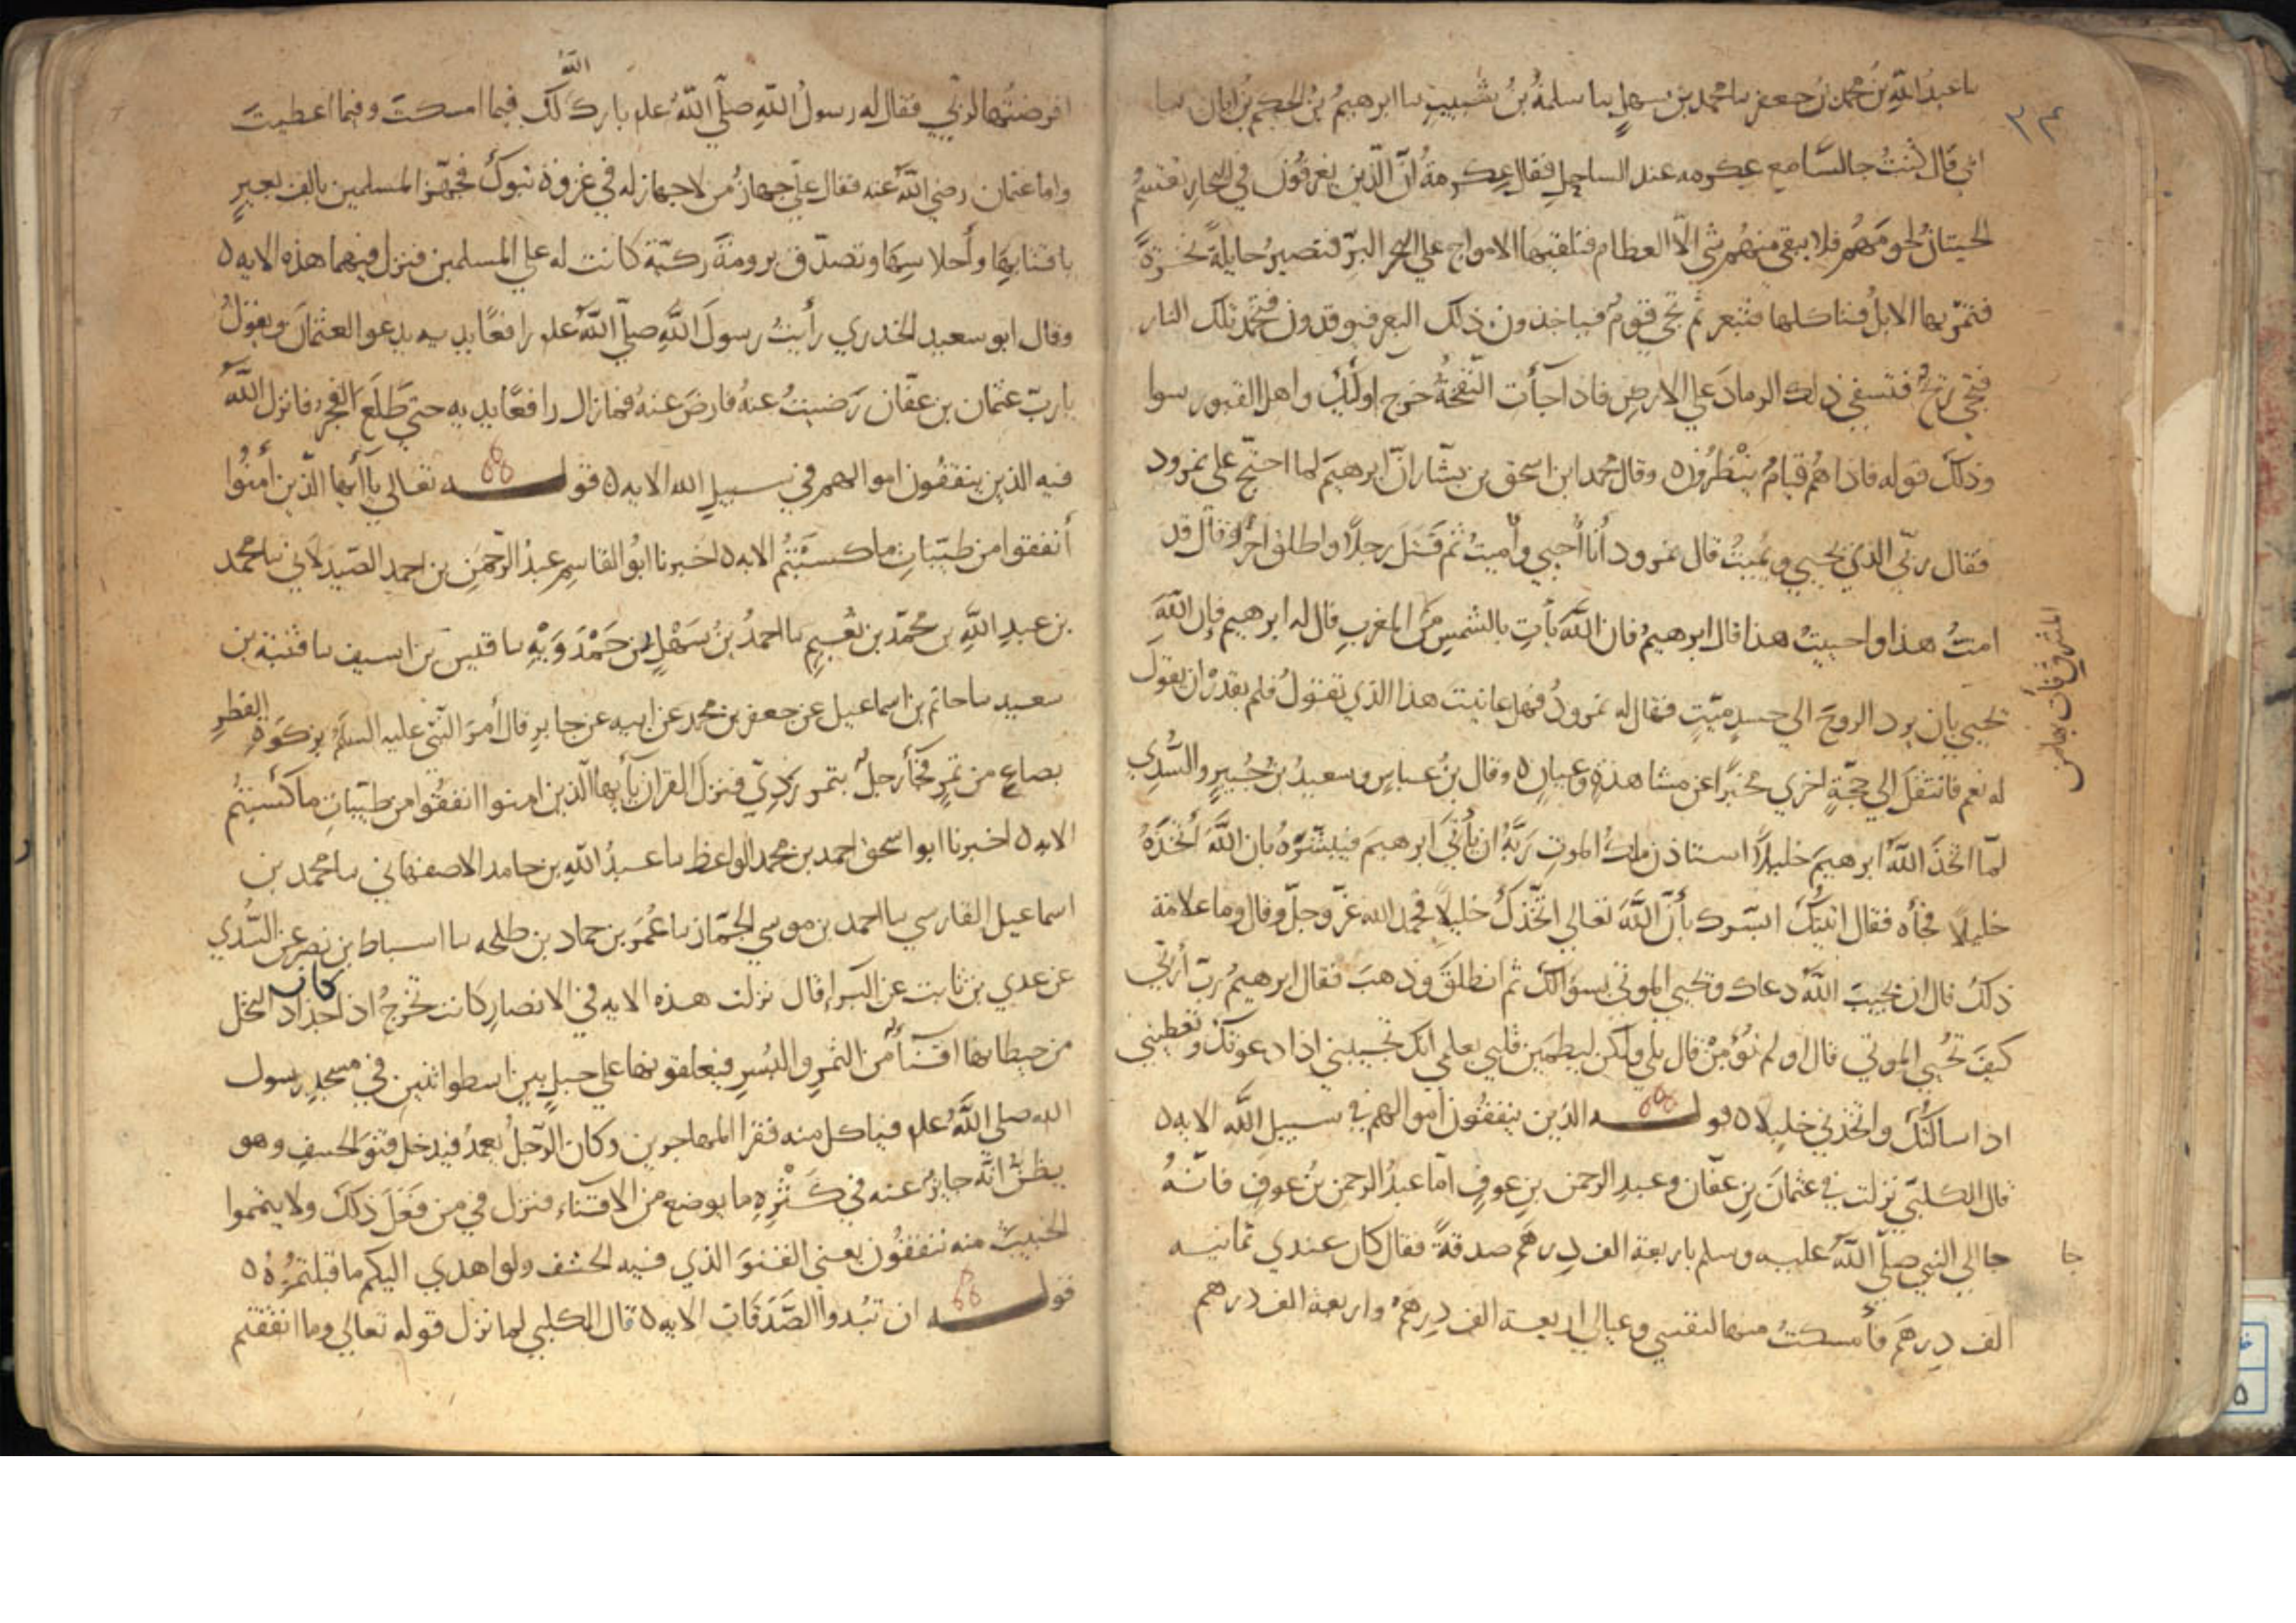 نا عبدُ اللّهِ بنُ محمد بن جعفر نا محمد بن سهلٍ نا سلمةُ بنُ شبيبٍ نا ابرهيمُ بنُ الحكم بن ابان نا
ابي قال كنتُ جالسًا مع عكرمه عند الساحلِ فقال عكرمةُ انّ الّذين يغرقونَ في البحارِ تقسّمُ
الحيتانُ لحومهُم فلا يبقى منهُم شي الّا العظام فتلقيها الامواج علي البرّ فتصيرُ حايلةً نخرةً
فتمرّ بها الابلُ فتاكلها فتبعر ثم تجي قومٌ فياخذون ذلك البعر فيوقدون فتخمُد تلك النار
فتجي ريحٌ فتسفي ذلك الرمادَ علي الارضِ فاذا جآءت النّفخةُ خرج اولٰئك واهل القبور سوا
وذلك قوله فاذا هُم قيامٌ ينْظرُون ٥ وقال محمد ابن اسحق بن يسّار انّ ابرهيمَ لما احتجّ على نمرود
فقال ربّي الذي يُحيي ويُميتُ قال نمرود أنا أُحيي وأُميتُ ثم قَتلَ رجلًا واطلق اخر وقال قد
امتُّ هذا واحييتُ هذا قال ابرهيمُ فان اللّهَ يأتِ بالشمسِ من المغربِ قال له ابرهيم فإن اللّهَ
المشرق فأت بها من
يحيي بان يرد الروحَ الي جسدٍ ميّتٍ فقال له نمرودُ فهل عاينتَ هذا الذي تقولُ فلم يقدرْ ان يقولَ
له نعم فانتقلَ الي حجّةٍ اخري مخبرًا عن مشاهدةٍ وعيانٍ ٥ وقال بنُ عباسٍ وسعيدُ بنُ جُبيرٍ والسُّدي
لمّا اتخذَ اللّهُ ابرهيمَ خليلًا استاذن ملكُ الموتِ ربَّهُ ان يأتيَ ابرهيمَ فيبشّرهُ بان اللّهَ اتخذهُ
خليلًا فجأه فقال اتيتُك ابشّرك بأنّ اللّهَ تعالي اتّخذك خليلًا فحمد الله عزّ وجلّ وقال وما علامة
ذلك قال ان يجيبَ اللّهُ دعاك ويحيي الموتي بسؤالك ثم انطلقَ وذهبَ فقال ابرهيمُ ربّ أرني
كيفَ تُحيي الموتي قال او لم تؤمِنْ قال بلي ولكن ليطمين قلبي بعلمي انك تجيبني اذا دعوتك وتعطيني
اذا سالتُك واتخذتني خليلا ٥ قوله الذين ينفقُون اموالهم في سبيلِ اللّه الايه ٥
قال الكلبيّ نزلت في عثمانَ بنِ عفّان وعبدِ الرحمن بنِ عوفٍ امّا عبدُ الرحمن بنُ عوفٍ فانّهُ
جا الي النبي صلّي اللّهُ عليه وسلم باربعة الف درهم صدقةً فقال كان عندي ثمانيه
جا
الف درهمَ فأمسكتُ منها لنفسي وعيالي اربعة الف درهم واربعة الف درهم
اقرضتُها لربّي فقال له رسولُ اللّهِ صلّي اللّهُ علم بارك لك فيما امسكتَ وفيما اعطيتَ
اللّه
واما عثمان رضي اللّهُ عنه فقال عليّ جهازُ من لا جهاز له في غزوة تبوك فجهّز المسلمين بالف بعيرٍ
باقتابها وأحلاسِها وتصدّق برومةَ ركيّة كانت له علي المسلمين فنزل فيهما هذه الايه ٥
وقال ابو سعيد الخدري رأيتُ رسولَ اللّهِ صلّي اللّهُ علم رافعًا يديه يدعو العثمان ويقولُ
يا ربّ عثمان بن عفّان رَضيتُ عنهُ فارضَ عنهُ فما زال رافعًا يديه حتي طَلعَ الفجرُ فانزل اللّهُ
فيه الذين ينفقُون اموالهم في سبيلِ الله الايه ٥ قوله تعالي يآ أيها الّذين أمنُوا
أنفقوا من طيّباتِ ما كسَبْتمُ الايه ٥ اخبرنا ابوُ القاسمِ عبدُ الرّحمنِ بن احمد الصّيدلاني نا محمد
بن عبدِ اللّهِ بن محمّد بن نعيمٍ نا احمدُ بنُ سَهْلٍ بن حَمْدَوَيْهِ نا قيس بن اسيف نا قتيبة بن
سعيد نا حاتم بن اسماعيل عن جعفر بن محمد عن ابيه عن جابرٍ قال أمرَ النبي عليه السلم بزكوةِ الفطرِ
بصاعٍ من تمرٍ فجأ رجلٌ بتمرٍ رَدِيّ فنزلَ القران يآ أيها الّذين امنوا انفقُوا من طيّباتِ ما كسبتمُ
الايه ٥ اخبرنا ابوا اسحق احمد بن محمد الواعظ نا عبدُ اللّهِ بن حامد الاصفهاني نا محمد بن
اسماعيل الفارسي نا احمد بن موسي الجمّاز نا عُمَرُ بن حماد بن طلحه نا اسباط بن نصر عن السُّدي
عن عدي بن ثابت عن البرإ قال نزلت هذه الايه في الانصارِ كانت تخرجُ اذا جذاذ النخل
كان
من حيطانها اقنآءً من الثمرِ والبُسرِ فيعلقونها علي حبلٍ بين اسطوانتين في مسجدِ رسول
الله صلي اللّهُ علم فياكل منه فقرا المهاجرين وكان الرّجلُ يعمدُ فيدخل قنوَ الحشفِ وهو
يظنّ انّه جايزٌ عنه في كَثْرةِ ما يوضع من الاقناء فنزل في من فَعَلَ ذلك ولا يتمموا
الخبيثَ منه تنفقُون يعني القنوَ الذي فيه الحشف ولو اهدي اليكم ما قبلتمُوهُ ٥
قوله ان تُبدوا الصَّدَقاتِ الايه ٥ قال الكلبي لما نزل قوله تعالي وما انفقتم